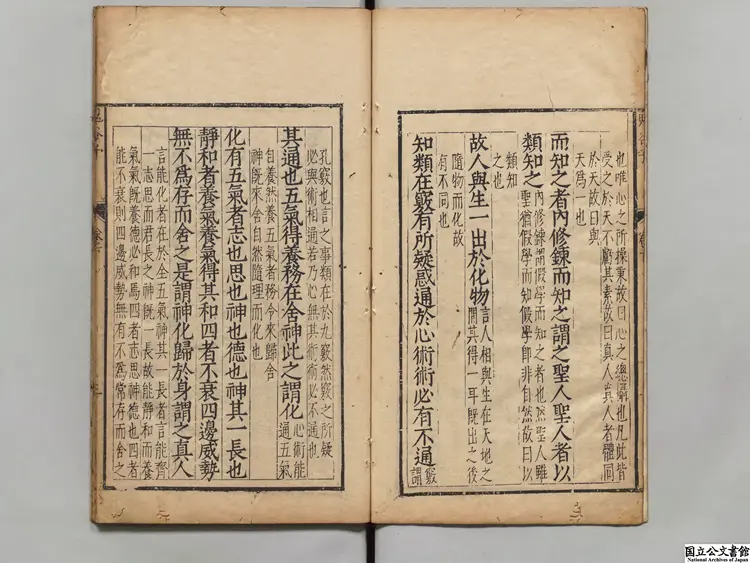 也唯心之所操秉故曰心之總攝也凡此皆
受之於天不虧其素故曰真人真人者體同
於天故曰與
天為一也
而知之者內修鍊而知之謂之聖人聖人者以
類知之
內修鍊謂假學而知之者也然聖人雖
聖猶假學而知假學即非自然故曰以
類知
之也
故人與生一出於化物
言人相與生在天地之
間其得一耳既出之後
隨物而化故
有不同也
知類在竅有所疑惑通於心術術必有不通
竅
謂
孔竅也言之事類在於九竅然竅之所疑
必與術相通若乃心無其術術必不通也
其通也五氣得養務在舍神此之謂化
心術能
通五氣
自養然養五氣者務令來歸舍
神既來舍自然隨理而化也
化有五氣者志也思也神也德也神其一長也
靜和者養氣養氣得其和四者不衰四邊威勢
無不為存而舍之是謂神化歸於身謂之真人
言能化者在於全五氣神其一長者言能齊
一志思而君長之神既一長故能靜和而養
氣氣既養德必和焉四者志思神德也四者
能不衰則四邊威勢無有不為常存而舍之
鬼谷子
国立公文書館
National Archives of Japan